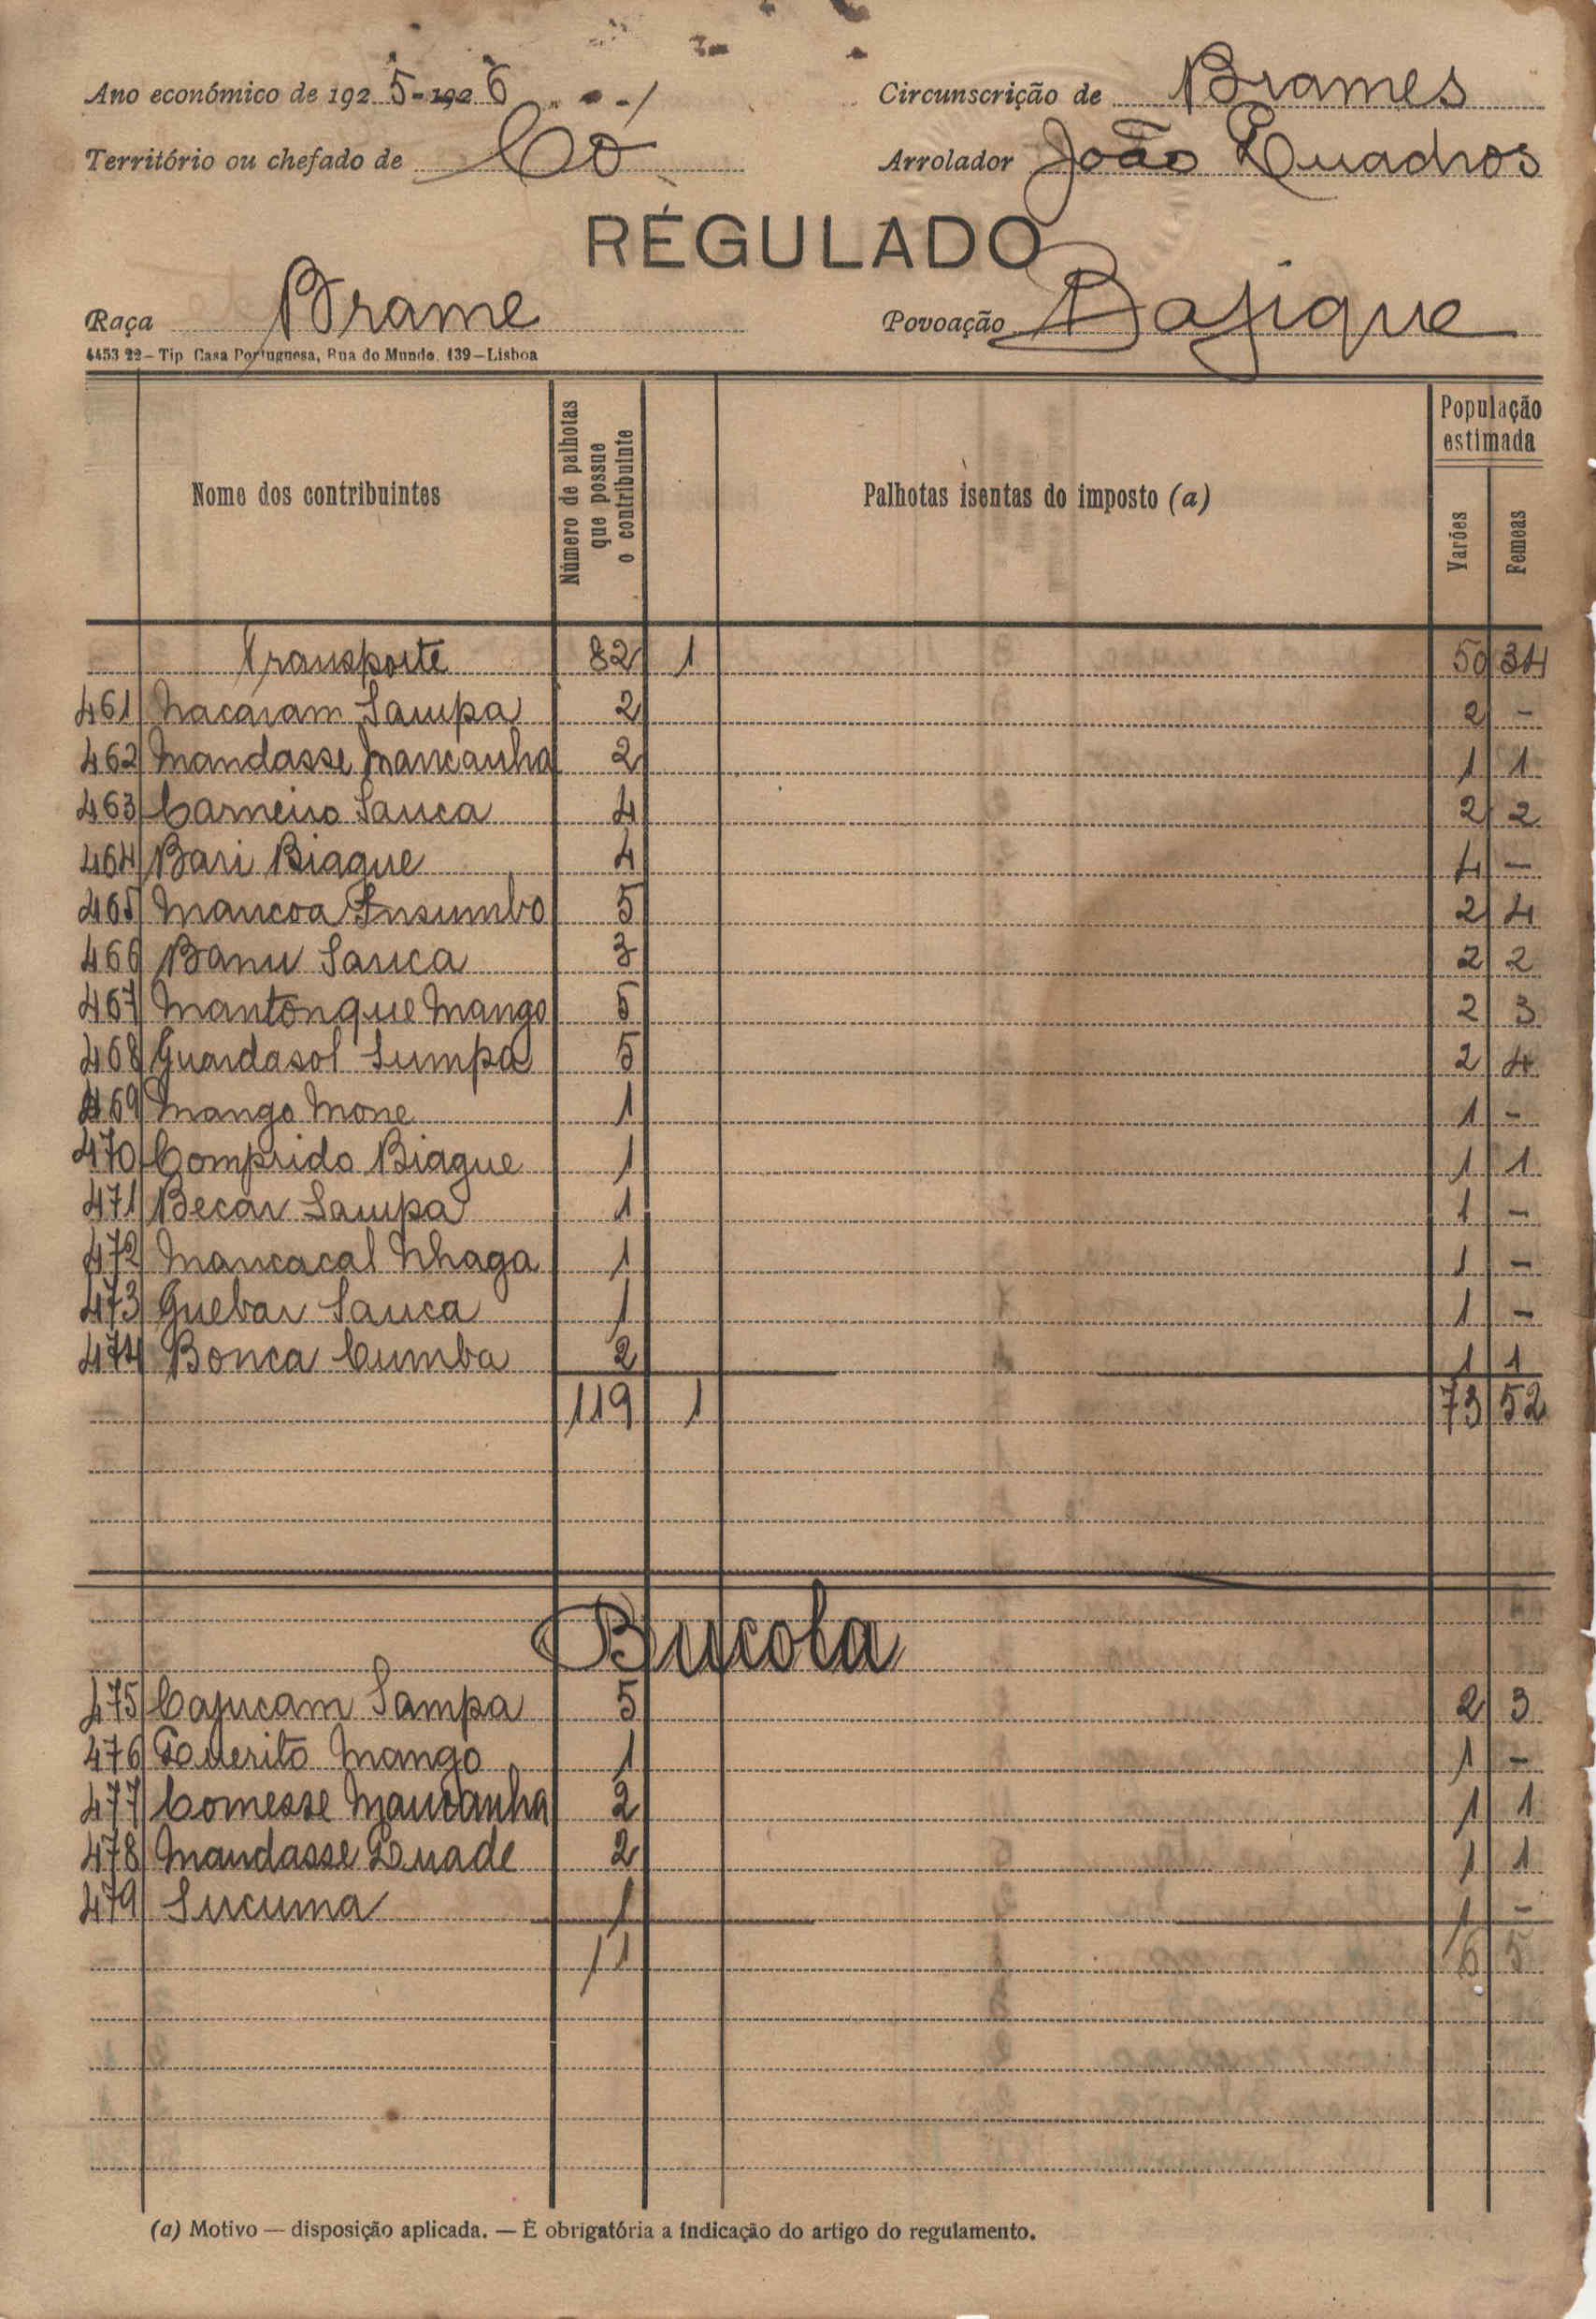 Ano económico de 1925-1926
Circunscrição de Brames
Território ou chefado de Có
Arrolador João Quadros
RÉGULADO
Raça Brame
Povoação Bajique
4453 22—Tip Casa Portuguesa, Rua do Mundo, 139—Lisboa
Nome dos contribuintes
Número de palhotas que possue o contribuinte
Palhotas isentas do imposto (a)
População estimada
Varões
Femeas
Transporte 82 1 50 34
461 Nacaram Sampa 2 2 -
462 Mandasse Mancanha 2 1 1
463 Carneiro Sanca 4 2 2
464 Bari Biague 4 4 -
465 Mancoa Insumbo 5 2 4
466 Banu Sanca 3 2 2
467 Mantonque Mango 5 2 3
468 Guardasol Sumpa 5 2 4
469 Mango Mone 1 1 -
470 Comprido Biague 1 1 1
471 Becar Sampa 1 1 -
472 Mancacal Nhaga 1 1 -
473 Quebar Sanca 1 1 -
474 Bonca Cumba 2 1 1
119 1 73 52
Bucola
475 Cajucam Sampa 5 2 3
476 Mango 1 1 -
477 Comesse Mancanha 2 1 1
478 Mandasse Quade 2 1 1
479 Sucuma 1 1 -
11 6 5
(a) Motivo — disposição aplicada. — É obrigatória a indicação do artigo do regulamento.